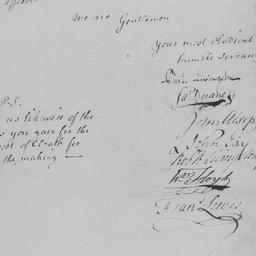 We are Gentlemen
Your most obedient
humble Servan
Phil. Livingston
Jas. Duane
John Alsop
John Jay
Wm Floyd
Frans. Lewis
P.S.
us likewise of the
you gave for the
of Cloath for
the making